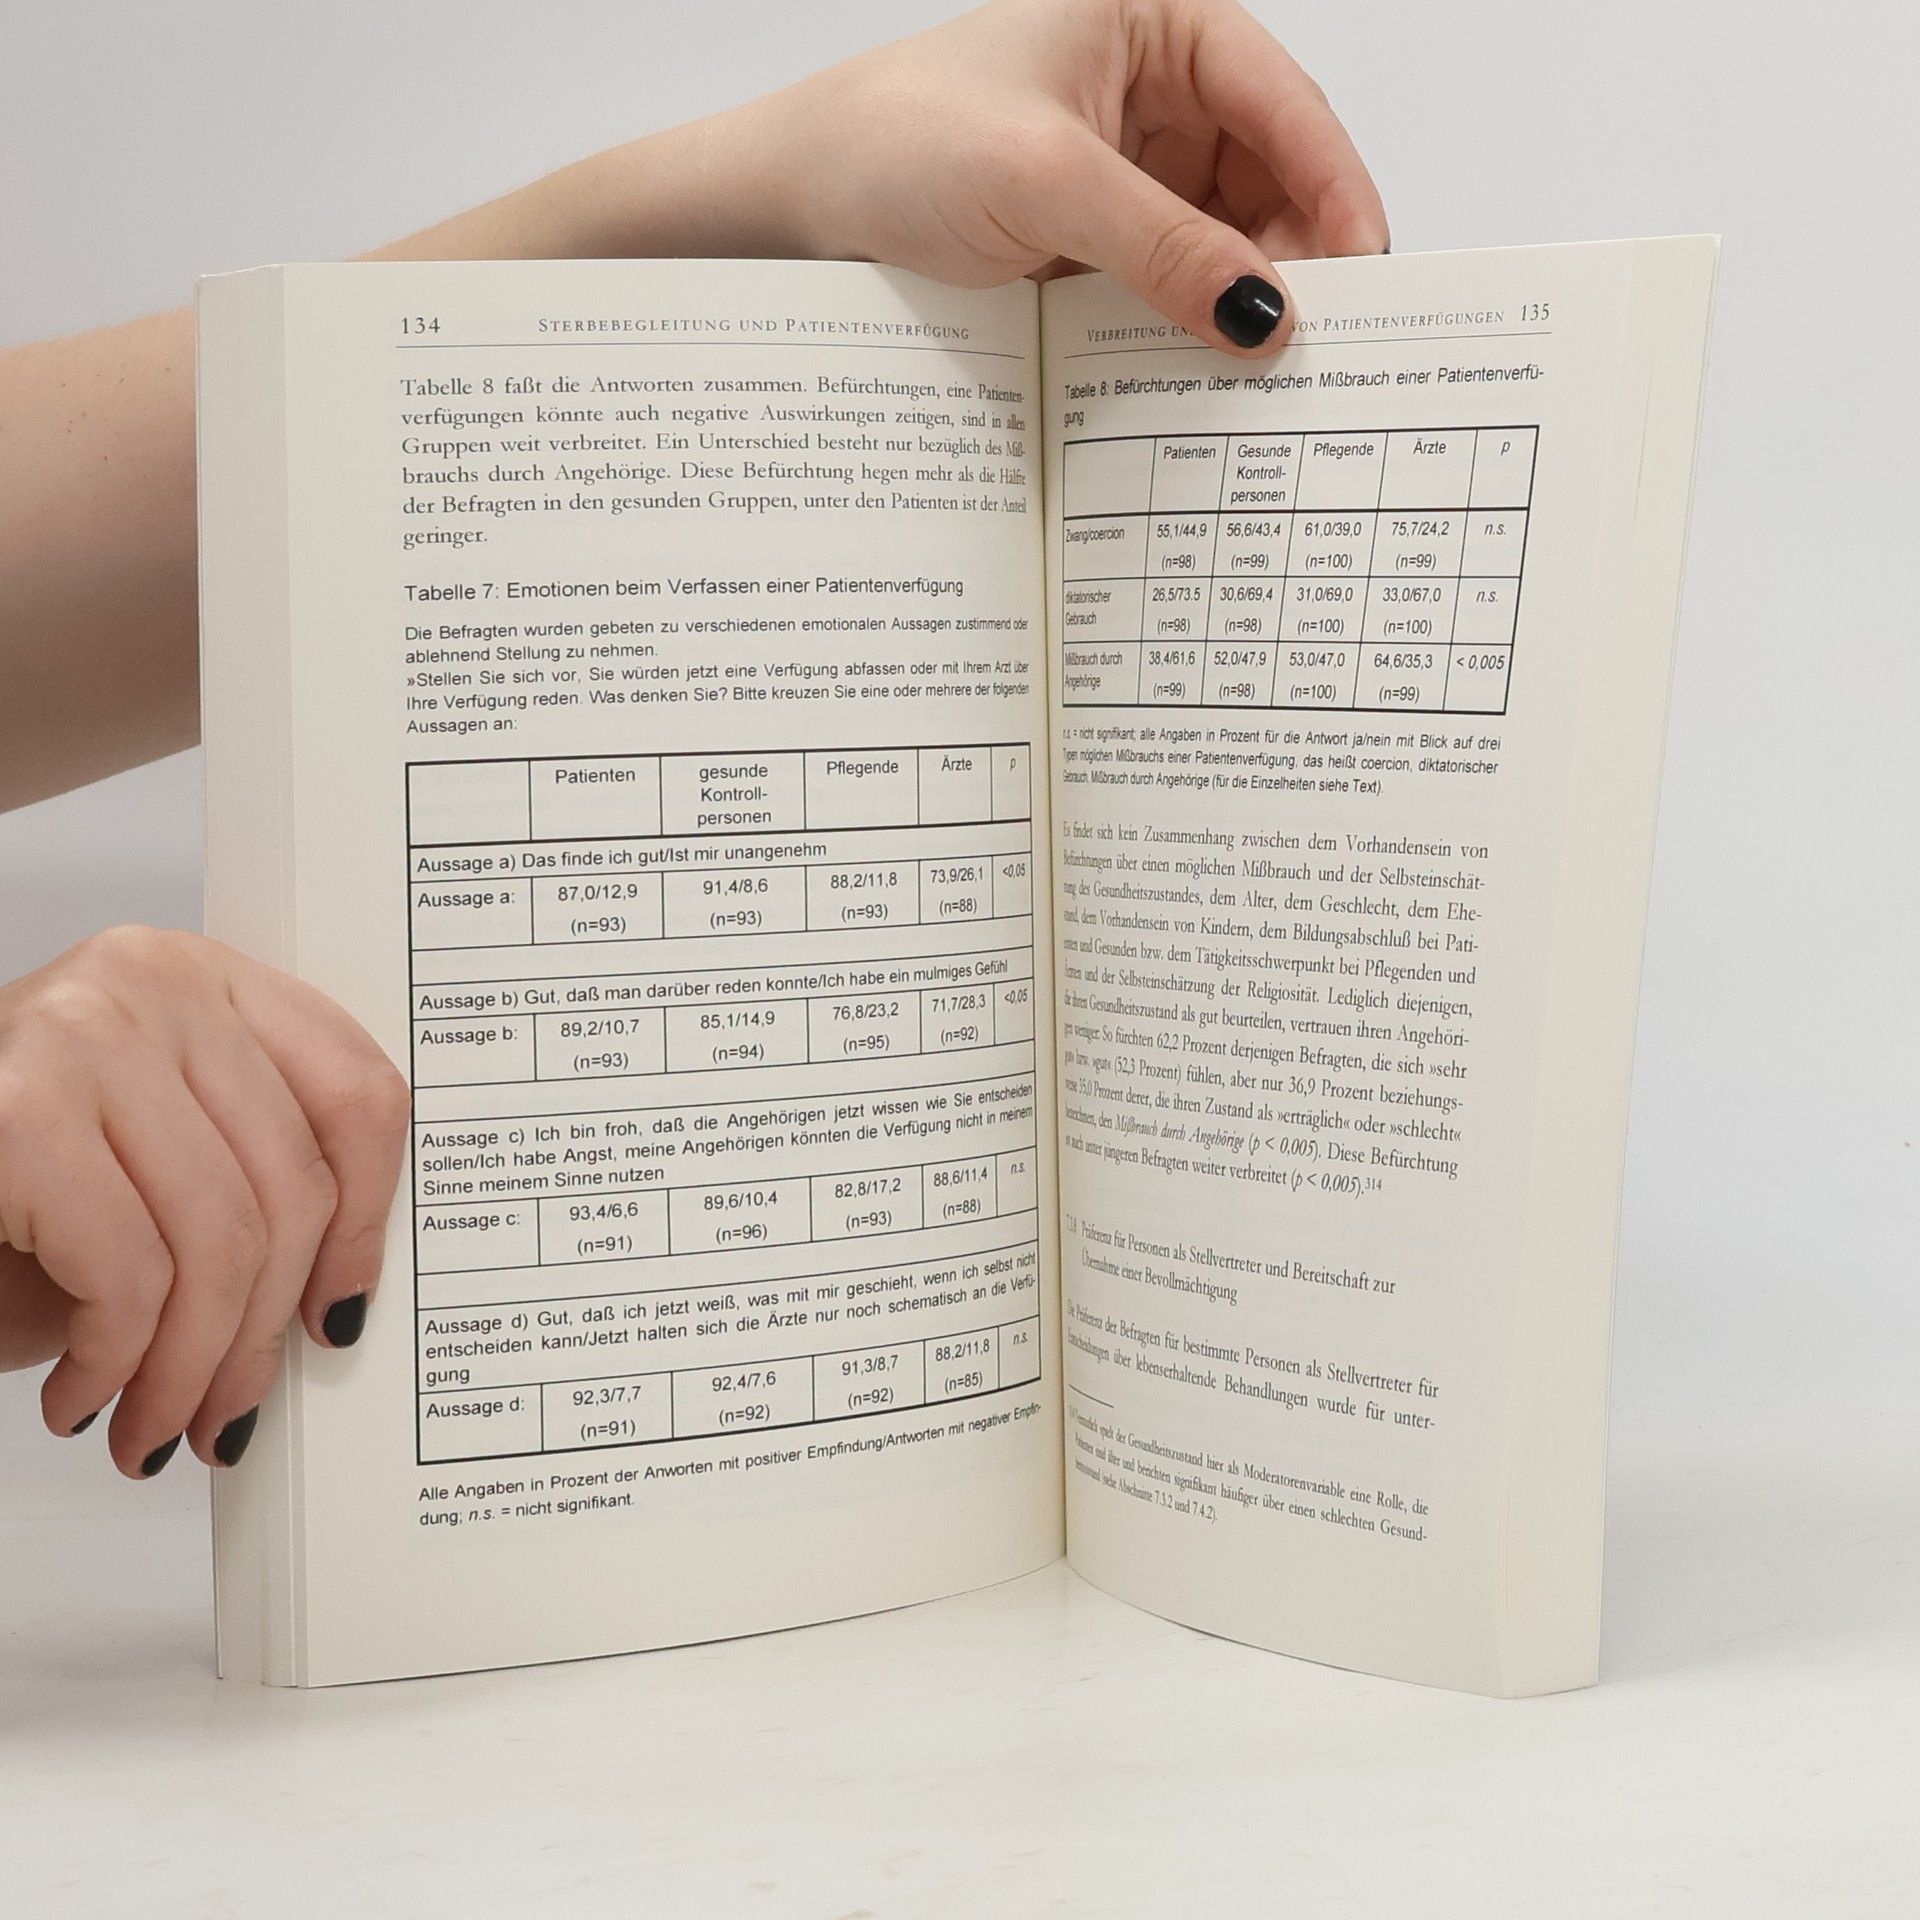 134 STERBEBEGLEITUNG UND PATIENTENVERFÜGUNG
Tabelle 8 faßt die Antworten zusammen. Befürchtungen, eine Patienten-
verfügungen könnte auch negative Auswirkungen zeitigen, sind in allen
Gruppen weit verbreitet. Ein Unterschied besteht nur bezüglich des Miß-
brauchs durch Angehörige. Diese Befürchtung hegen mehr als die Hälfte
der Befragten in den gesunden Gruppen, unter den Patienten ist der Anteil
geringer.
Tabelle 7: Emotionen beim Verfassen einer Patientenverfügung
Die Befragten wurden gebeten zu verschiedenen emotionalen Aussagen zustimmend oder
ablehnend Stellung zu nehmen.
»Stellen Sie sich vor, Sie würden jetzt eine Verfügung abfassen oder mit Ihrem Arzt über
Ihre Verfügung reden. Was denken Sie? Bitte kreuzen Sie eine oder mehrere der folgenden
Aussagen an:
Patienten gesunde Pflegende Ärzte p
Kontroll-
personen
Aussage a) Das finde ich gut/Ist mir unangenehm
Aussage a: 87,0/12,9 91,4/8,6 88,2/11,8 73,9/26,1 <0,05
(n=93) (n=93) (n=93) (n=88)
Aussage b) Gut, daß man darüber reden konnte/Ich habe ein mulmiges Gefühl
Aussage b: 89,2/10,7 85,1/14,9 76,8/23,2 71,7/28,3 <0,05
(n=93) (n=94) (n=95) (n=92)
Aussage c) Ich bin froh, daß die Angehörigen jetzt wissen wie Sie entscheiden
sollen/Ich habe Angst, meine Angehörigen könnten die Verfügung nicht in meinem
Sinne meinem Sinne nutzen
Aussage c: 93,4/6,6 89,6/10,4 82,8/17,2 88,6/11,4 n.s.
(n=91) (n=96) (n=93) (n=88)
Aussage d) Gut, daß ich jetzt weiß, was mit mir geschieht, wenn ich selbst nicht
entscheiden kann/Jetzt halten sich die Ärzte nur noch schematisch an die Verfü-
gung
Aussage d: 92,3/7,7 92,4/7,6 91,3/8,7 88,2/11,8 n.s.
(n=91) (n=92) (n=92) (n=85)
Alle Angaben in Prozent der Anworten mit positiver Empfindung/Antworten mit negativer Empfin-
dung; n.s. = nicht signifikant.
VERBREITUNG VON PATIENTENVERFÜGUNGEN 135
Tabelle 8: Befürchtungen über möglichen Mißbrauch einer Patientenverfü-
gung
Patienten Gesunde Pflegende Ärzte p
Kontroll-
personen
Zwang/coercion 55,1/44,9 56,6/43,4 61,0/39,0 75,7/24,2 n.s.
(n=98) (n=99) (n=100) (n=99)
diktatorischer 26,5/73.5 30,6/69,4 31,0/69,0 33,0/67,0 n.s.
Gebrauch (n=98) (n=98) (n=100) (n=100)
Mißbrauch durch 38,4/61,6 52,0/47,9 53,0/47,0 64,6/35,3 < 0,005
Angehörige (n=99) (n=98) (n=100) (n=99)
n.s. = nicht signifikant; alle Angaben in Prozent für die Antwort ja/nein mit Blick auf drei
Typen möglichen Mißbrauchs einer Patientenverfügung, das heißt coercion, diktatorischer
Gebrauch, Mißbrauch durch Angehörige (für die Einzelheiten siehe Text).
Es findet sich kein Zusammenhang zwischen dem Vorhandensein von
Befürchtungen über einen möglichen Mißbrauch und der Selbsteinschät-
zung des Gesundheitszustandes, dem Alter, dem Geschlecht, dem Ehe-
stand, dem Vorhandensein von Kindern, dem Bildungsabschluß bei Pati-
enten und Gesunden bzw. dem Tätigkeitsschwerpunkt bei Pflegenden und
Ärzten und der Selbsteinschätzung der Religiosität. Lediglich diejenigen,
die ihren Gesundheitszustand als gut beurteilen, vertrauen ihren Angehöri-
gen weniger: So fürchten 62,2 Prozent derjenigen Befragten, die sich »sehr
gut« bzw. »gut« (52,3 Prozent) fühlen, aber nur 36,9 Prozent beziehungs-
weise 35,0 Prozent derer, die ihren Zustand als »erträglich« oder »schlecht«
bezeichnen, den Mißbrauch durch Angehörige (p < 0,005). Diese Befürchtung
ist auch unter jüngeren Befragten weiter verbreitet (p < 0,005).314
Präferenz für Personen als Stellvertreter und Bereitschaft zur
Übernahme einer Bevollmächtigung
Die Präferenz der Befragten für bestimmte Personen als Stellvertreter für
Entscheidungen über lebenserhaltende Behandlungen wurde für unter-
314 Vermutlich spielt der Gesundheitszustand hier als Moderatorenvariable eine Rolle, die
Patienten sind älter und berichten signifikant häufiger über einen schlechten Gesund-
heitszustand (siehe Abschnitte 7.3.2 und 7.4.2).